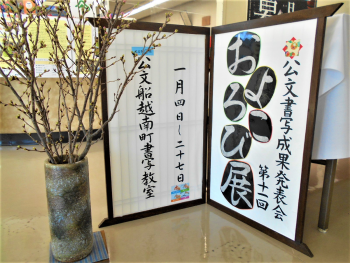 公文書写成果発表会
第十一回
よろこび展
一月四日～二十七日
公文船越南町書写教室